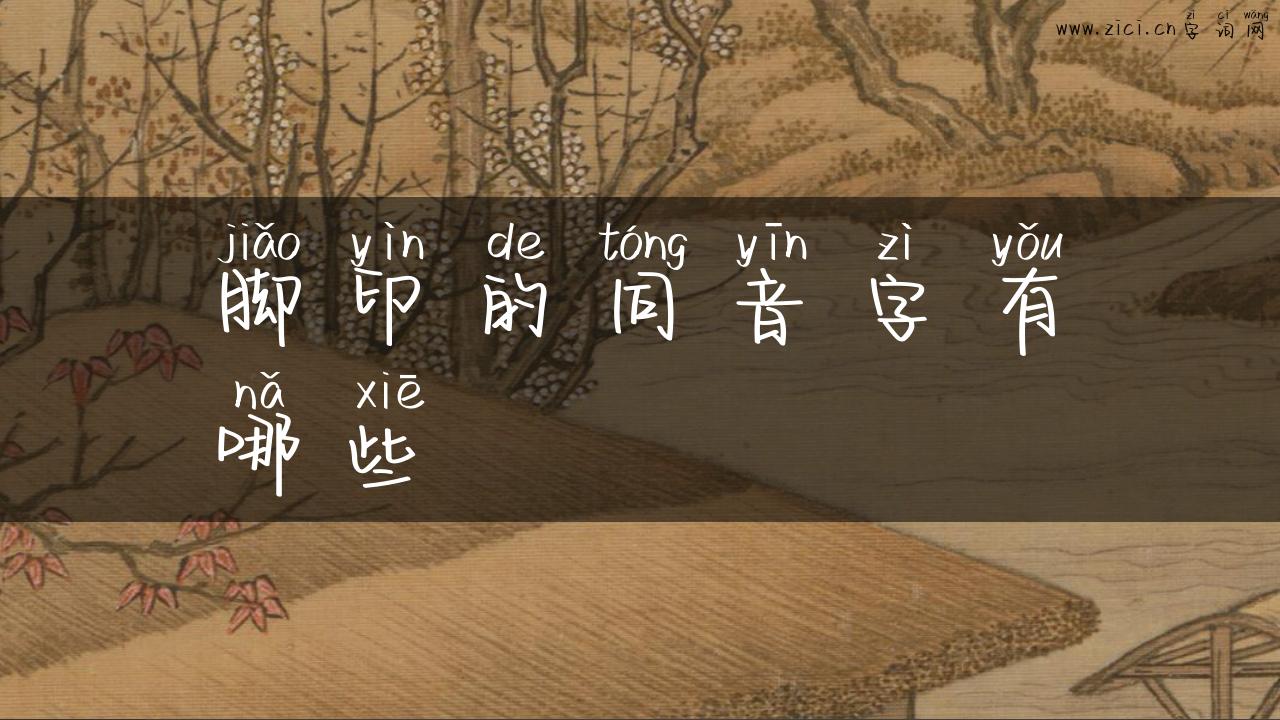 zì cí wǎng
www.zici.cn字词网
jiǎo yìn de tóng yīn zì yǒu
脚印的同音字有
nǎ xiē
哪些